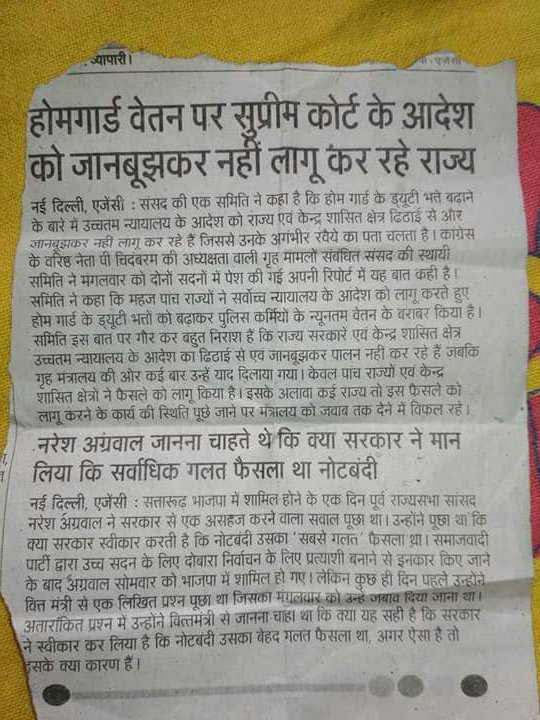 व्यापारी।
होमगार्ड वेतन पर सुप्रीम कोर्ट के आदेश
को जानबूझकर नहीं लागू कर रहे राज्य
नई दिल्ली, एजेंसी : संसद की एक समिति ने कहा है कि होम गार्ड के ड्यूटी भत्ते बढ़ाने
के बारे में उच्चतम न्यायालय के आदेश को राज्य एवं केन्द्र शासित क्षेत्र ढिठाई से और
जानबूझकर नहीं लागू कर रहे हैं जिससे उनके अगंभीर रवैये का पता चलता है। कांग्रेस
के वरिष्ठ नेता पी चिदंबरम की अध्यक्षता वाली गृह मामलों संबंधित संसद की स्थायी
समिति ने मंगलवार को दोनों सदनों में पेश की गई अपनी रिपोर्ट में यह बात कही है।
समिति ने कहा कि महज पांच राज्यों ने सर्वोच्च न्यायालय के आदेश को लागू करते हुए
होम गार्ड के ड्यूटी भत्तों को बढ़ाकर पुलिस कर्मियों के न्यूनतम वेतन के बराबर किया है।
समिति इस बात पर गौर कर बहुत निराश हैं कि राज्य सरकारें एवं केन्द्र शासित क्षेत्र
उच्चतम न्यायालय के आदेश का ढिठाई से एवं जानबूझकर पालन नहीं कर रहे हैं जबकि
गृह मंत्रालय की ओर कई बार उन्हें याद दिलाया गया। केवल पांच राज्यों एवं केन्द्र
शासित क्षेत्रों ने फैसले को लागू किया है। इसके अलावा कई राज्य तो इस फैसले को
लागू करने के कार्य की स्थिति पूछे जाने पर मंत्रालय को जवाब तक देने में विफल रहे।
नरेश अग्रवाल जानना चाहते थे कि क्या सरकार ने मान
लिया कि सर्वाधिक गलत फैसला था नोटबंदी
नई दिल्ली, एजेंसी : सत्तारूढ़ भाजपा में शामिल होने के एक दिन पूर्व राज्यसभा सांसद
नरेश अग्रवाल ने सरकार से एक असहज करने वाला सवाल पूछा था। उन्होंने पूछा था कि
क्या सरकार स्वीकार करती है कि नोटबंदी उसका 'सबसे गलत' फैसला था। समाजवादी
पार्टी द्वारा उच्च सदन के लिए दोबारा निर्वाचन के लिए प्रत्याशी बनाने से इनकार किए जाने
के बाद अग्रवाल सोमवार को भाजपा में शामिल हो गए। लेकिन कुछ ही दिन पहले उन्होंने
वित्त मंत्री से एक लिखित प्रश्न पूछा था जिसका मंगलवार को उन्हें जवाब दिया जाना था।
अतारांकित प्रश्न में उन्होंने वित्तमंत्री से जानना चाहा था कि क्या यह सही है कि सरकार
ने स्वीकार कर लिया है कि नोटबंदी उसका बेहद गलत फैसला था, अगर ऐसा है तो
इसके क्या कारण हैं।